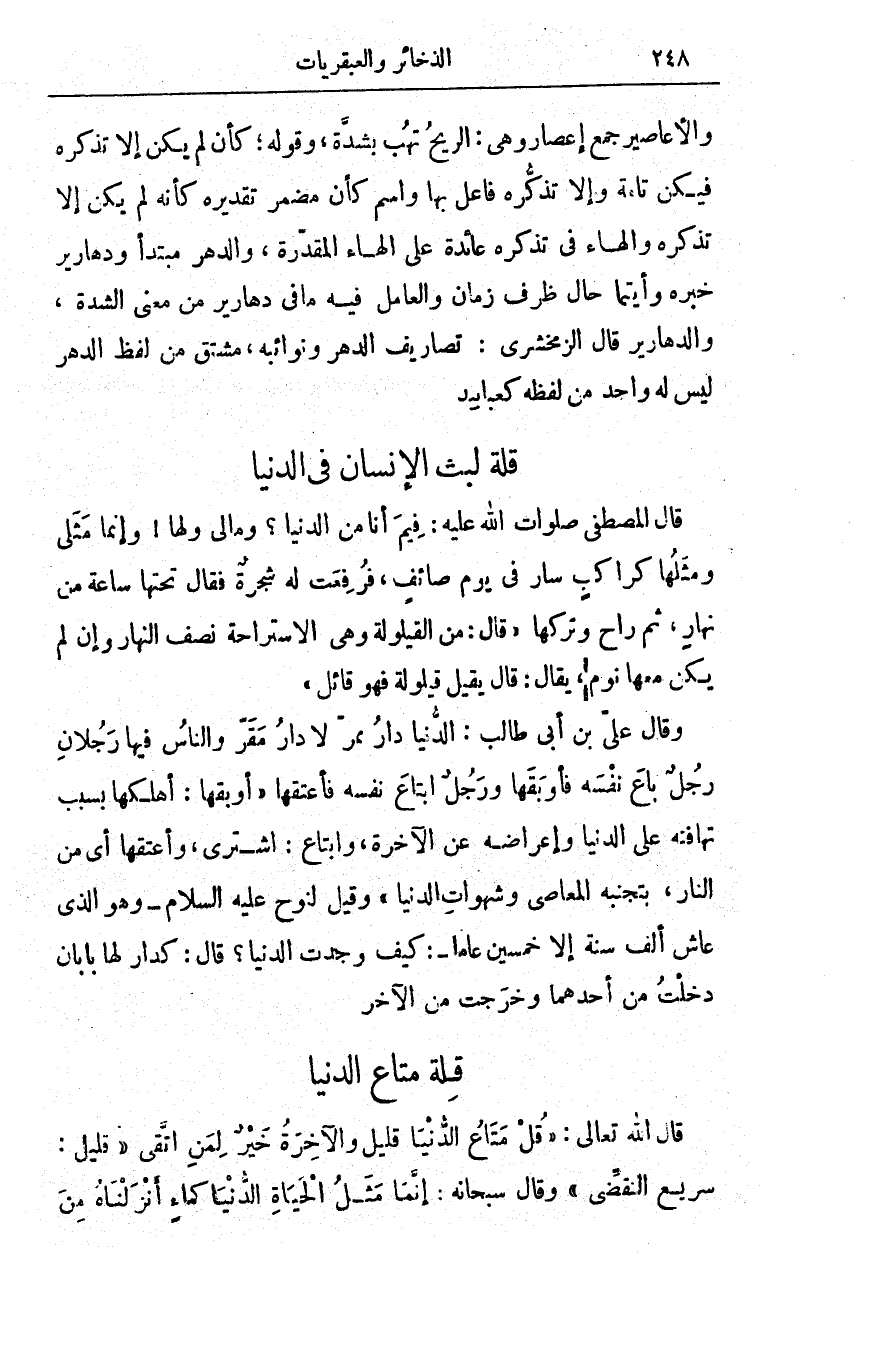 ٢٤٨ الذخائر والعبقريات
والأعاصير جمع إعصار وهى : الريحُ تهُب بشدَّة ، وقوله ؛ كأن لم يكن إلا تذكره
فيكن تامة وإلا تذكُّره فاعل بها واسم كأن مضمر تقديره كأنه لم يكن إلا
تذكره والهاء فى تذكره عائدة على الهاء المقدّرة ، والدهر مبتدأ ودهارير
خبره وأيتما حال ظرف زمان والعامل فيه مافى دهارير من معنى الشدة ،
والدهارير قال الزمخشرى : تصاريف الدهر ونوائبه ، مشتق من لفظ الدهر
ليس له واحد من لفظه كعبابيد
قلة لبث الإنسان فى الدنيا
قال المصطفى صلوات الله عليه : فِيمَ أنا من الدنيا ؟ ومالى ولها ! وإنما مَثَلى
ومثَلُها كراكبٍ سار فى يوم صائفٍ ، فرُفِعَت له شجرةٌ فقال تحتها ساعة من
نهارٍ ، ثم راح وتركها « قال : من القيلولة وهى الاستراحة نصف النهار وإن لم
يكن معها نوم ، يقال : قال يقيل قيلولة فهو قائل »
وقال علىّ بن أبى طالب : الدُّنيا دارُ ممرّ لا دارُ مَقَرّ والناسُ فيها رَجُلانِ
رجُلٌ باعَ نفْسَه فأوبَقَها ورَجُلٌ ابتاعَ نفسه فأعتقها « أوبقها : أهلكها بسبب
تهافته على الدنيا وإعراضه عن الآخرة ، وابتاع : اشترى ، وأعتقها أى من
النار ، بتجنبه المعاصى وشهواتِ الدنيا » وقيل لنوح عليه السلام ـ وهو الذى
عاش ألف سنة إلا خمسين عاما ـ : كيف وجدت الدنيا ؟ قال : كدار لها بابان
دخلْتُ من أحدهما وخرَجت من الآخر
قِلة متاع الدنيا
قال الله تعالى : « قُلْ مَتَاعُ الدُّنْيَا قليل والآخِرَةُ خَيْرٌ لِمَنِ اتَّقى « قليل :
سريع التقضِّى » وقال سبحانه : إنَّمَا مَثَلُ الْحَيَاةِ الدُّنْيَا كماءٍ أَنْزَلْنَاهُ مِنَ